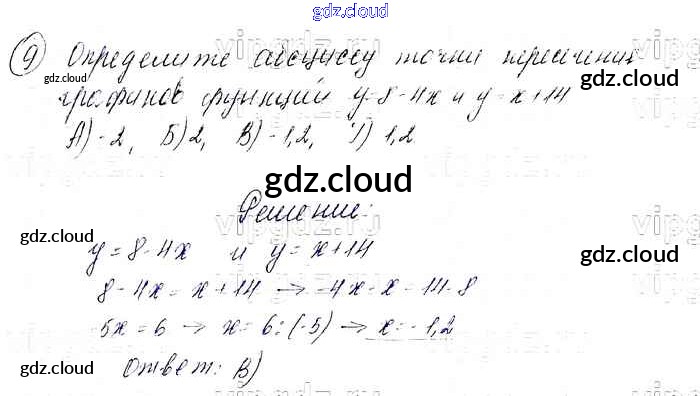 gdz.cloud
9) Определите абсциссу точки пересечения
gdz.cloud
графиков функций y=8-4x и y=x+14
gdz.cloud
А)-2, Б)2, В)-1,2, Г) 1,2
gdz.cloud
Решение:
gdz.cloud
y=8-4x и y=x+14
gdz.cloud
8-4x=x+14 → -4x-x=14-8
-5x=6 → x=6:(-5) → x=-1,2
Ответ: В)